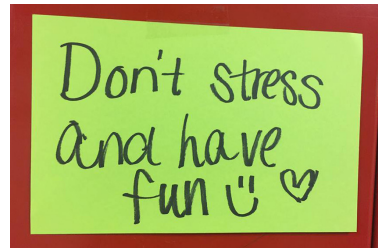 Don't stress
and have
fun ü ♡